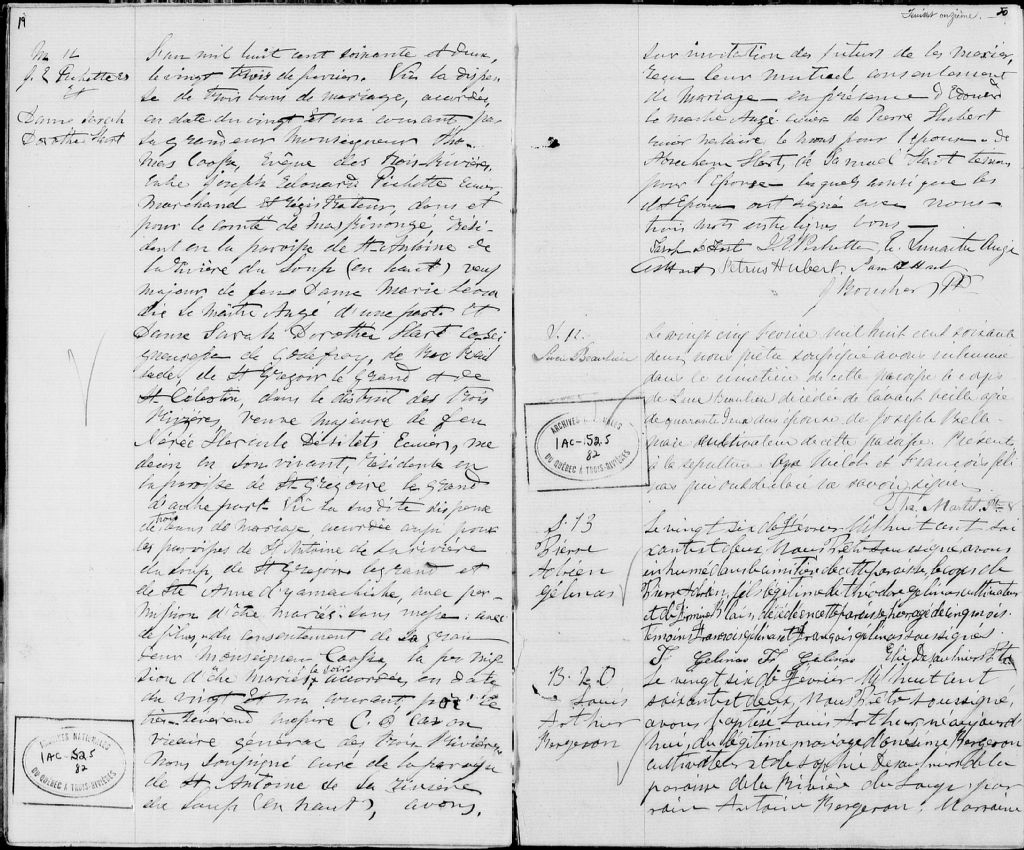 19
M. 12
J. E. Pichette
et
Dame Sarah
Dorothée Hart
L'an mil huit cent soixante et deux,
le vingt trois de fevrier. Vû la dispen
se de trois bans de mariage, accordée,
en date du vingt et un courant par
Sa Grandeur Monseigneur Tho-
mas Cooke, Evêque des Trois-Rivières,
entre Joseph Edouard Pichette Ecuier,
Marchand et Régistrateur, dans et
pour le comté de Maskinongé, Rési-
dent en la paroisse de St Antoine de
la Rivière du Loup (en haut) veuf
majeur de feue Dame Marie Leoca
die Le Maître Augé d'une part et
Dame Sarah Dorothée Hart co-sei
gneuresse de Godefroy, de Roc
de St Gregoire le Grand et de
St Célestin, dans le district des Trois
Rivières, veuve majeure de feu
Nérée Hercule Désilets Ecuier, me
decin en son vivant, résidente en
la paroisse de St Gregoire le Grand
d'autre part. Vû la susdite dispense
de trois bans de mariage accordée aussi pour
les paroisses de St Antoine de la rivière
du Loup, de St Gregoire le grand et
de Ste Anne d'yamachiche, avec per-
mission d'être mariés sans messe: avec
de plus, du consentement de sa Gran
deur Monseigneur Cooke, la permis
sion d'être mariés le soir accordée, en date
du vingt et un courant, par le
très-Reverend messire C. O. Caron
vicaire général des Trois Rivières
Nous soussigné curé de la paroisse
de St Antoine de la Rivière
du Loup (en haut), avons,
ARCHIVES NATIONALES
1AC-525
82
DU QUÉBEC À TROIS-RIVIÈRES
Feuillet onzième. 20
sur invitation des futurs de les marier,
reçu leur mutuel consentement
de mariage en présence d'Edouard
Le maître Augé, de Pierre Hubert
Ecuier notaire, témoins pour l'époux - de
Abraham Hart, de Samuel Hart témoins
pour l'Epouse lesquels ainsi que les
dits Epoux ont signé avec nous
trois mots entre lignes bons
J. E. Pichette, E. Lemaitre Augé
A Hart, Petrus Hubert, Sam Hart
J Boucher Ptre
S. 12.
Luce Beaulieu
Le vingt cinq fevrier mil huit cent soixante
deux, nous prêtre soussigné avons inhumé
dans le cimetière de cette paroisse le corps
de Luce Beaulieu décédée de l'avant veille agée
de quarante deux ans épouse de Joseph Belle
mare cultivateur de cette paroisse. Présents
à la sépulture Milot et François Géli
nas qui ont déclaré ne savoir signer.
ARCHIVES NATIONALES
1AC-525
82
DU QUÉBEC À TROIS-RIVIÈRES
S. 13
Pierre
Adrien
Gélinas
Le vingt six de février mil huit cent soi
xante et deux, nous Prêtre soussigné, avons
inhumé dans le cimetière de cette paroisse le corps de
Pierre Adrien, fils légitime de Théodore Gélinas cultivateur
et de Blais, décédé en cette paroisse, agé de cinq mois.
témoins François Gélinas et François Gélinas soussignés.
F. Gélinas Fs Gélinas Désaulniers Ptre
B. 20
Louis
Arthur
Bergeron
Le vingt six de février mil huit cent
soixante et deux, nous Prêtre soussigné,
avons baptisé Louis Arthur, né aujourd
hui, du légitime mariage d'Onésime Bergeron
cultivateur et de Sophie Désaulniers de la
paroisse de la Rivière du Loup; par
rain Antoine Bergeron; Marraine